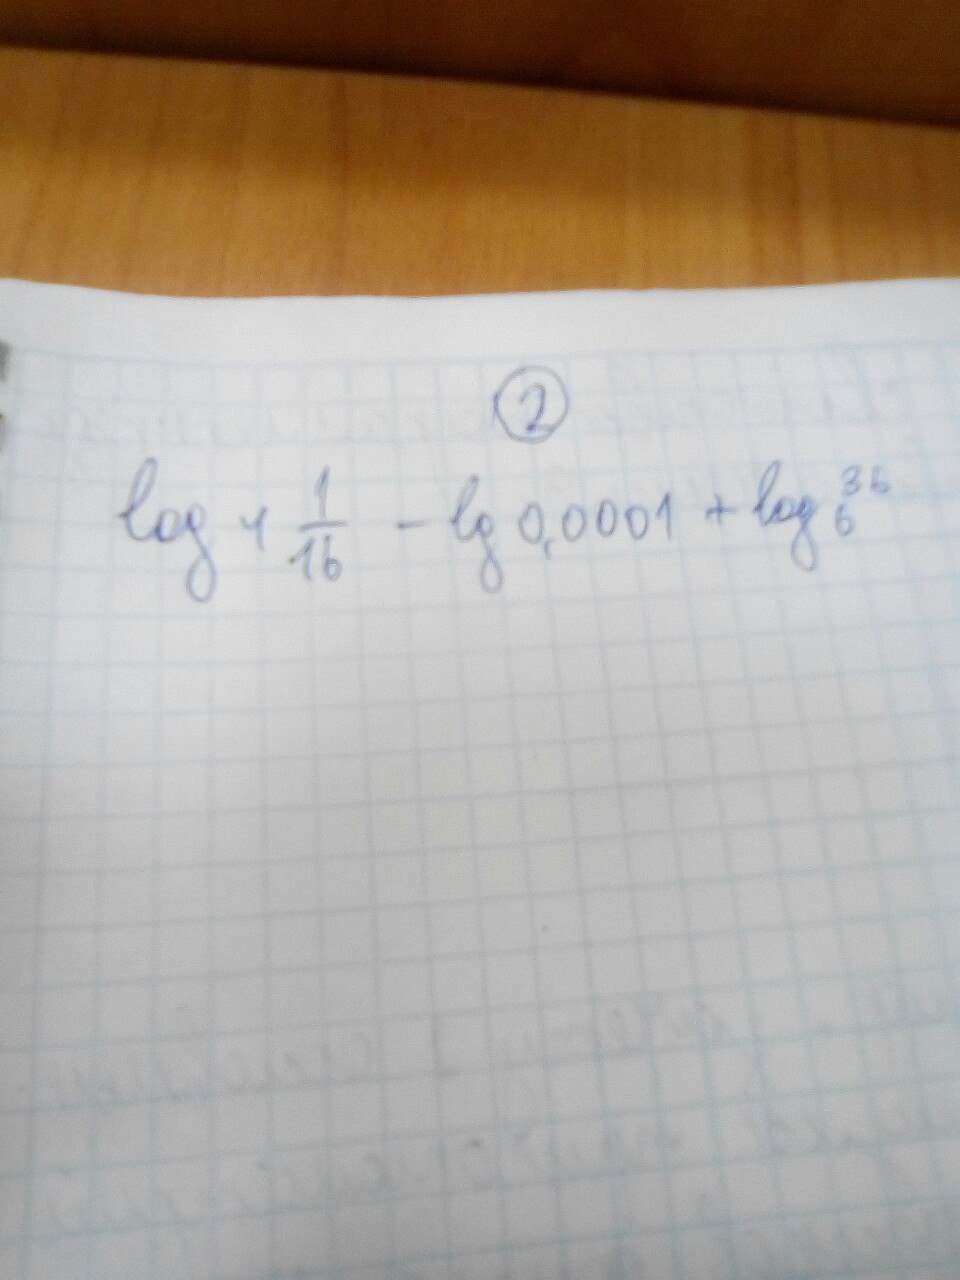 2
log 4 1/16 - lg 0,0001 + log 6 36